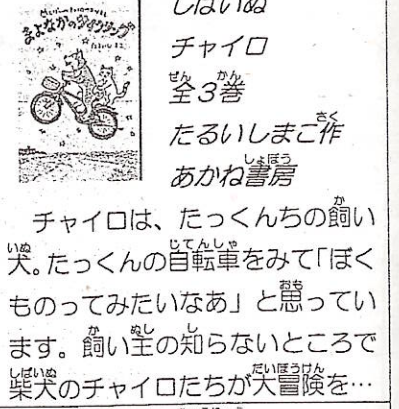 まよなかのサイクリング
しばいぬ
チャイロ
全3巻
たるいしまこ作
あかね書房
チャイロは、たっくんちの飼い
犬。たっくんの自転車をみて「ぼく
ものってみたいなあ」と思ってい
ます。飼い主の知らないところで
柴犬のチャイロたちが大冒険を…